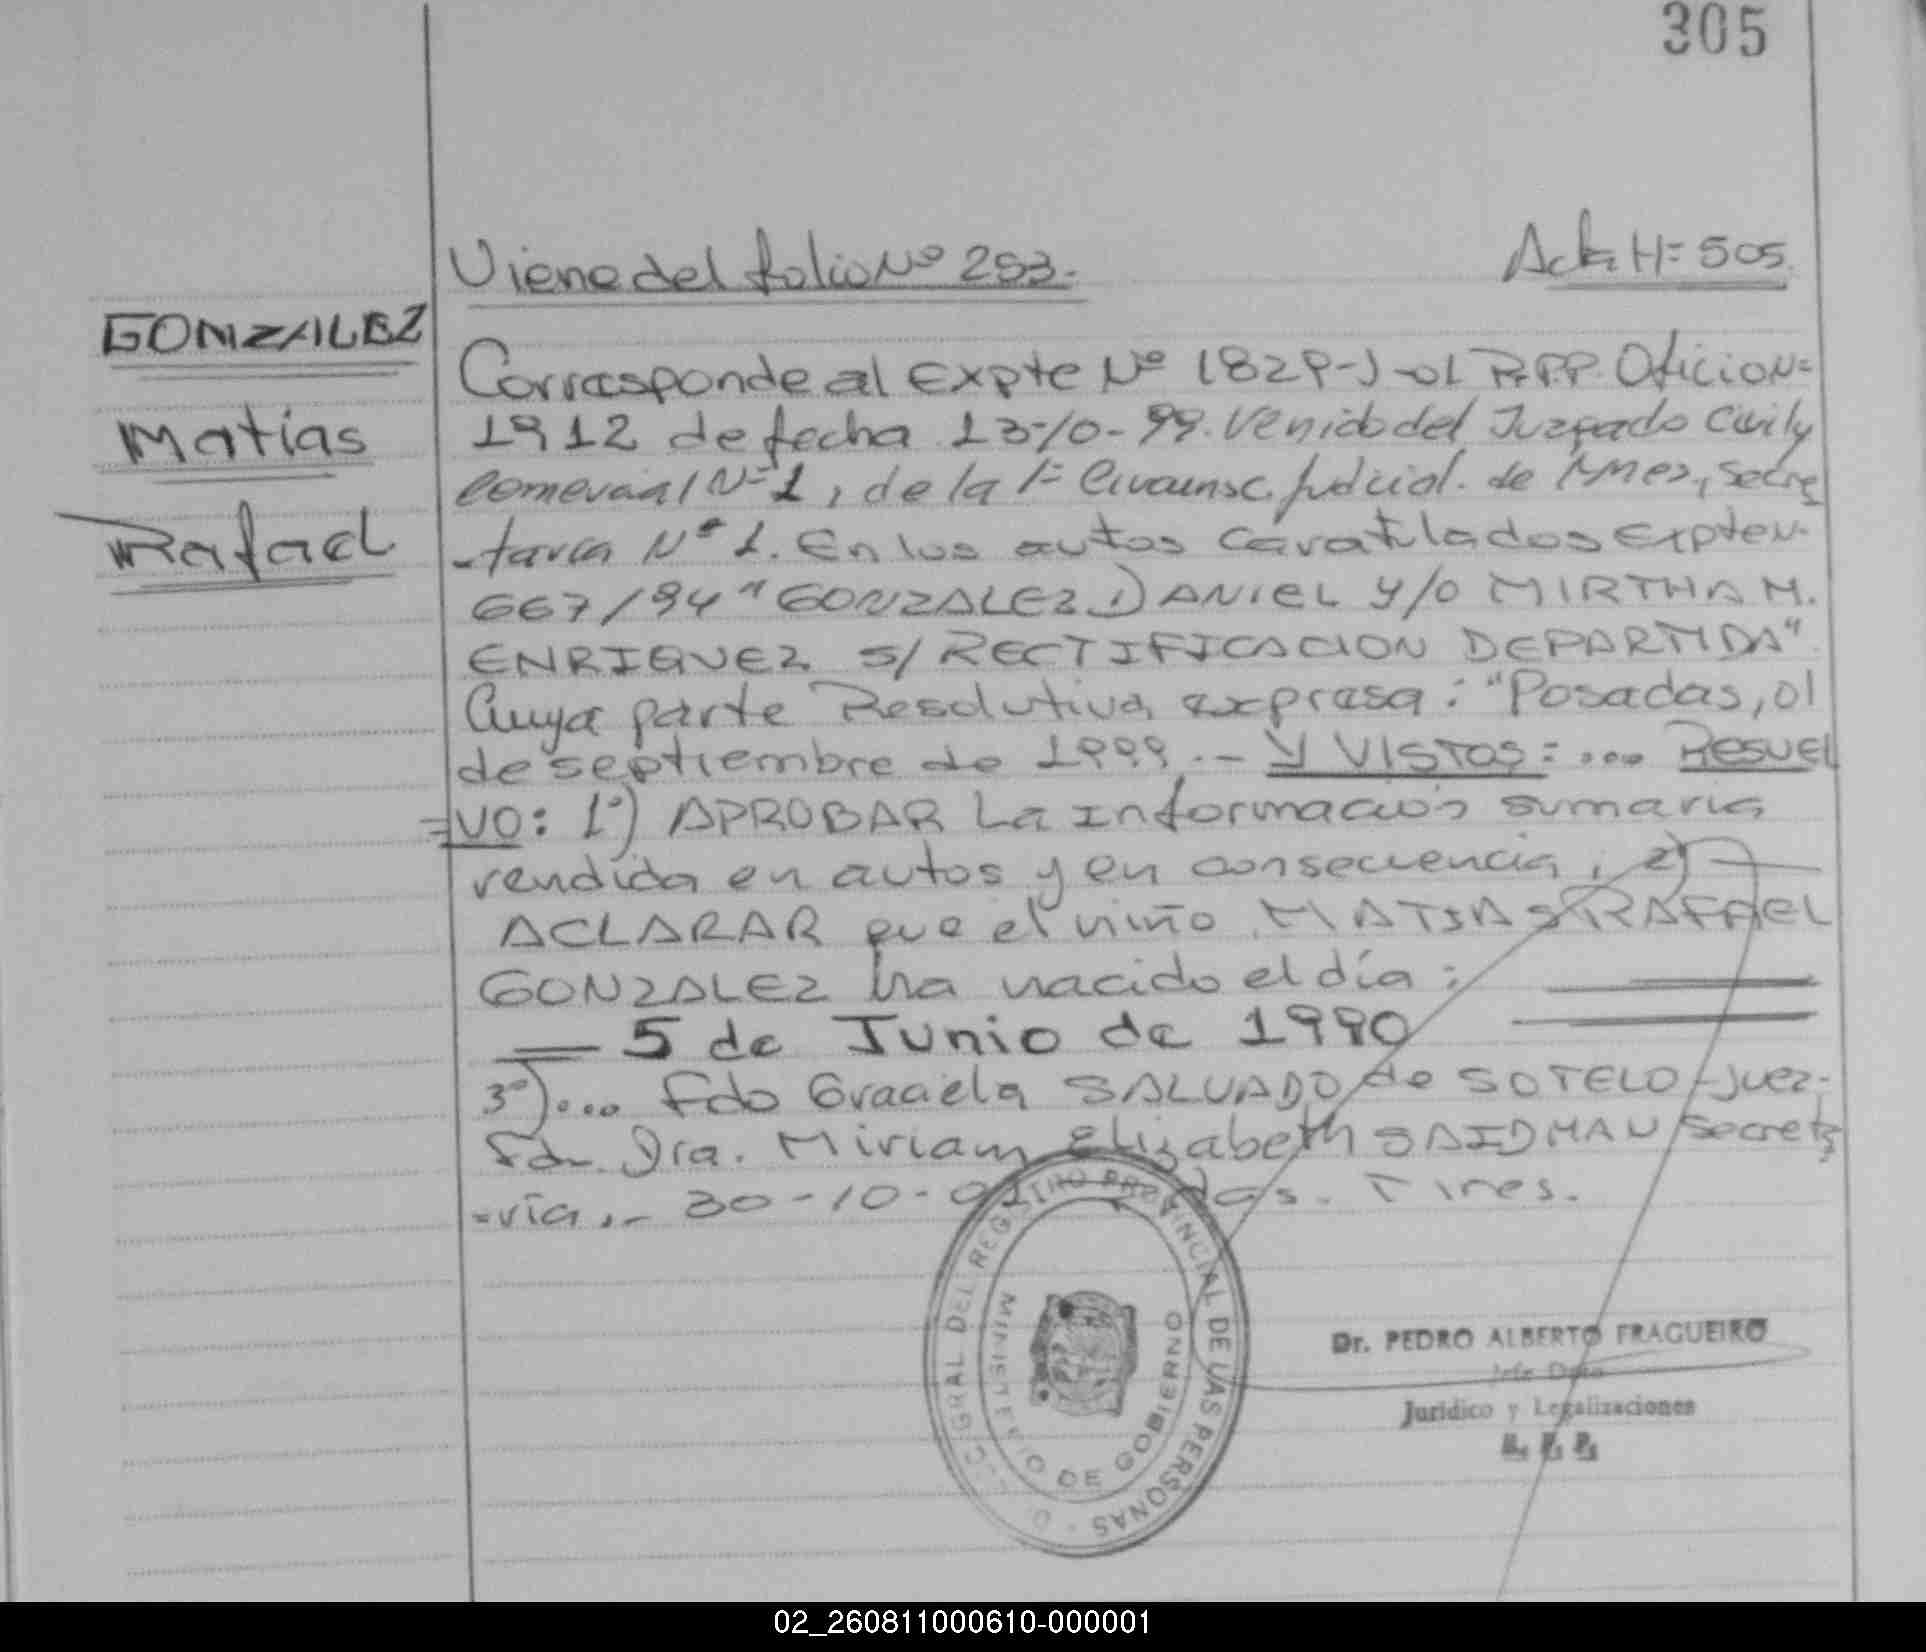 305
Viene del folio Nº 253.
Acta Nº 505.
GONZALEZ
Matías
Rafael
Corresponde al Expte Nº 1829-J-01 R.P.P. Oficio N=
1912 de fecha 13-10-99. Venido del Juzgado Civil y
Comercial Nº 1, de la 1ª Circunsc. Judicial. de Mnes, Secre
-taria Nº 1. En los autos caratulados Expte N.
667/94 "GONZALEZ DANIEL Y/O MIRTHA M.
ENRIQUEZ S/ RECTIFICACION DE PARTIDA"
Cuya parte Resolutiva expresa: "Posadas, 01
de septiembre de 1999.- Y VISTOS: ... RESUEL
=VO: 1º) APROBAR La Información sumaria
rendida en autos y en consecuencia; 2º)
ACLARAR que el niño MATIAS RAFAEL
GONZALEZ ha nacido el día:
— 5 de Junio de 1990
3º).... Fdo Graciela SALVADO de SOTELO - Juez.-
Fdo. Dra. Miriam Elizabeth SAIDMAN Secreta
=ria.- 30-10-01
DEL REGISTRO PROVINCIAL DE LAS PERSONAS
MINISTERIO DE GOBIERNO
Dr. PEDRO ALBERTO FRAGUEIRO
Jefe Dpto
Jurídico y Legalizaciones
R. P. P.
02_260811000610-000001